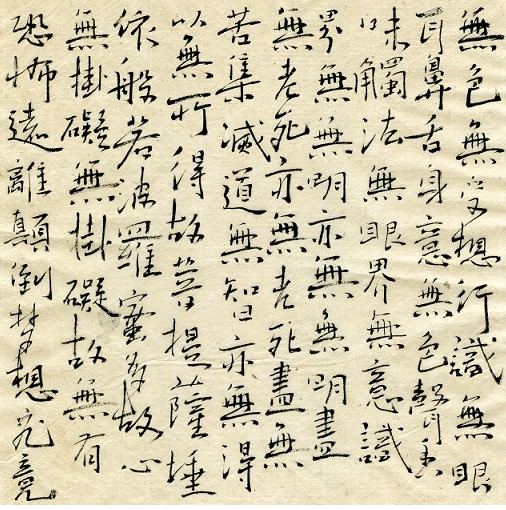 無色無受想行識無眼
耳鼻舌身意無色聲香
味觸法無眼界無意識
界無無明亦無無明盡
無老死亦無老死盡無
苦集滅道無智亦無得
以無所得故菩提薩埵
依般若波羅蜜多故心
無掛礙無掛礙故無有
恐怖遠離顛倒夢想究竟